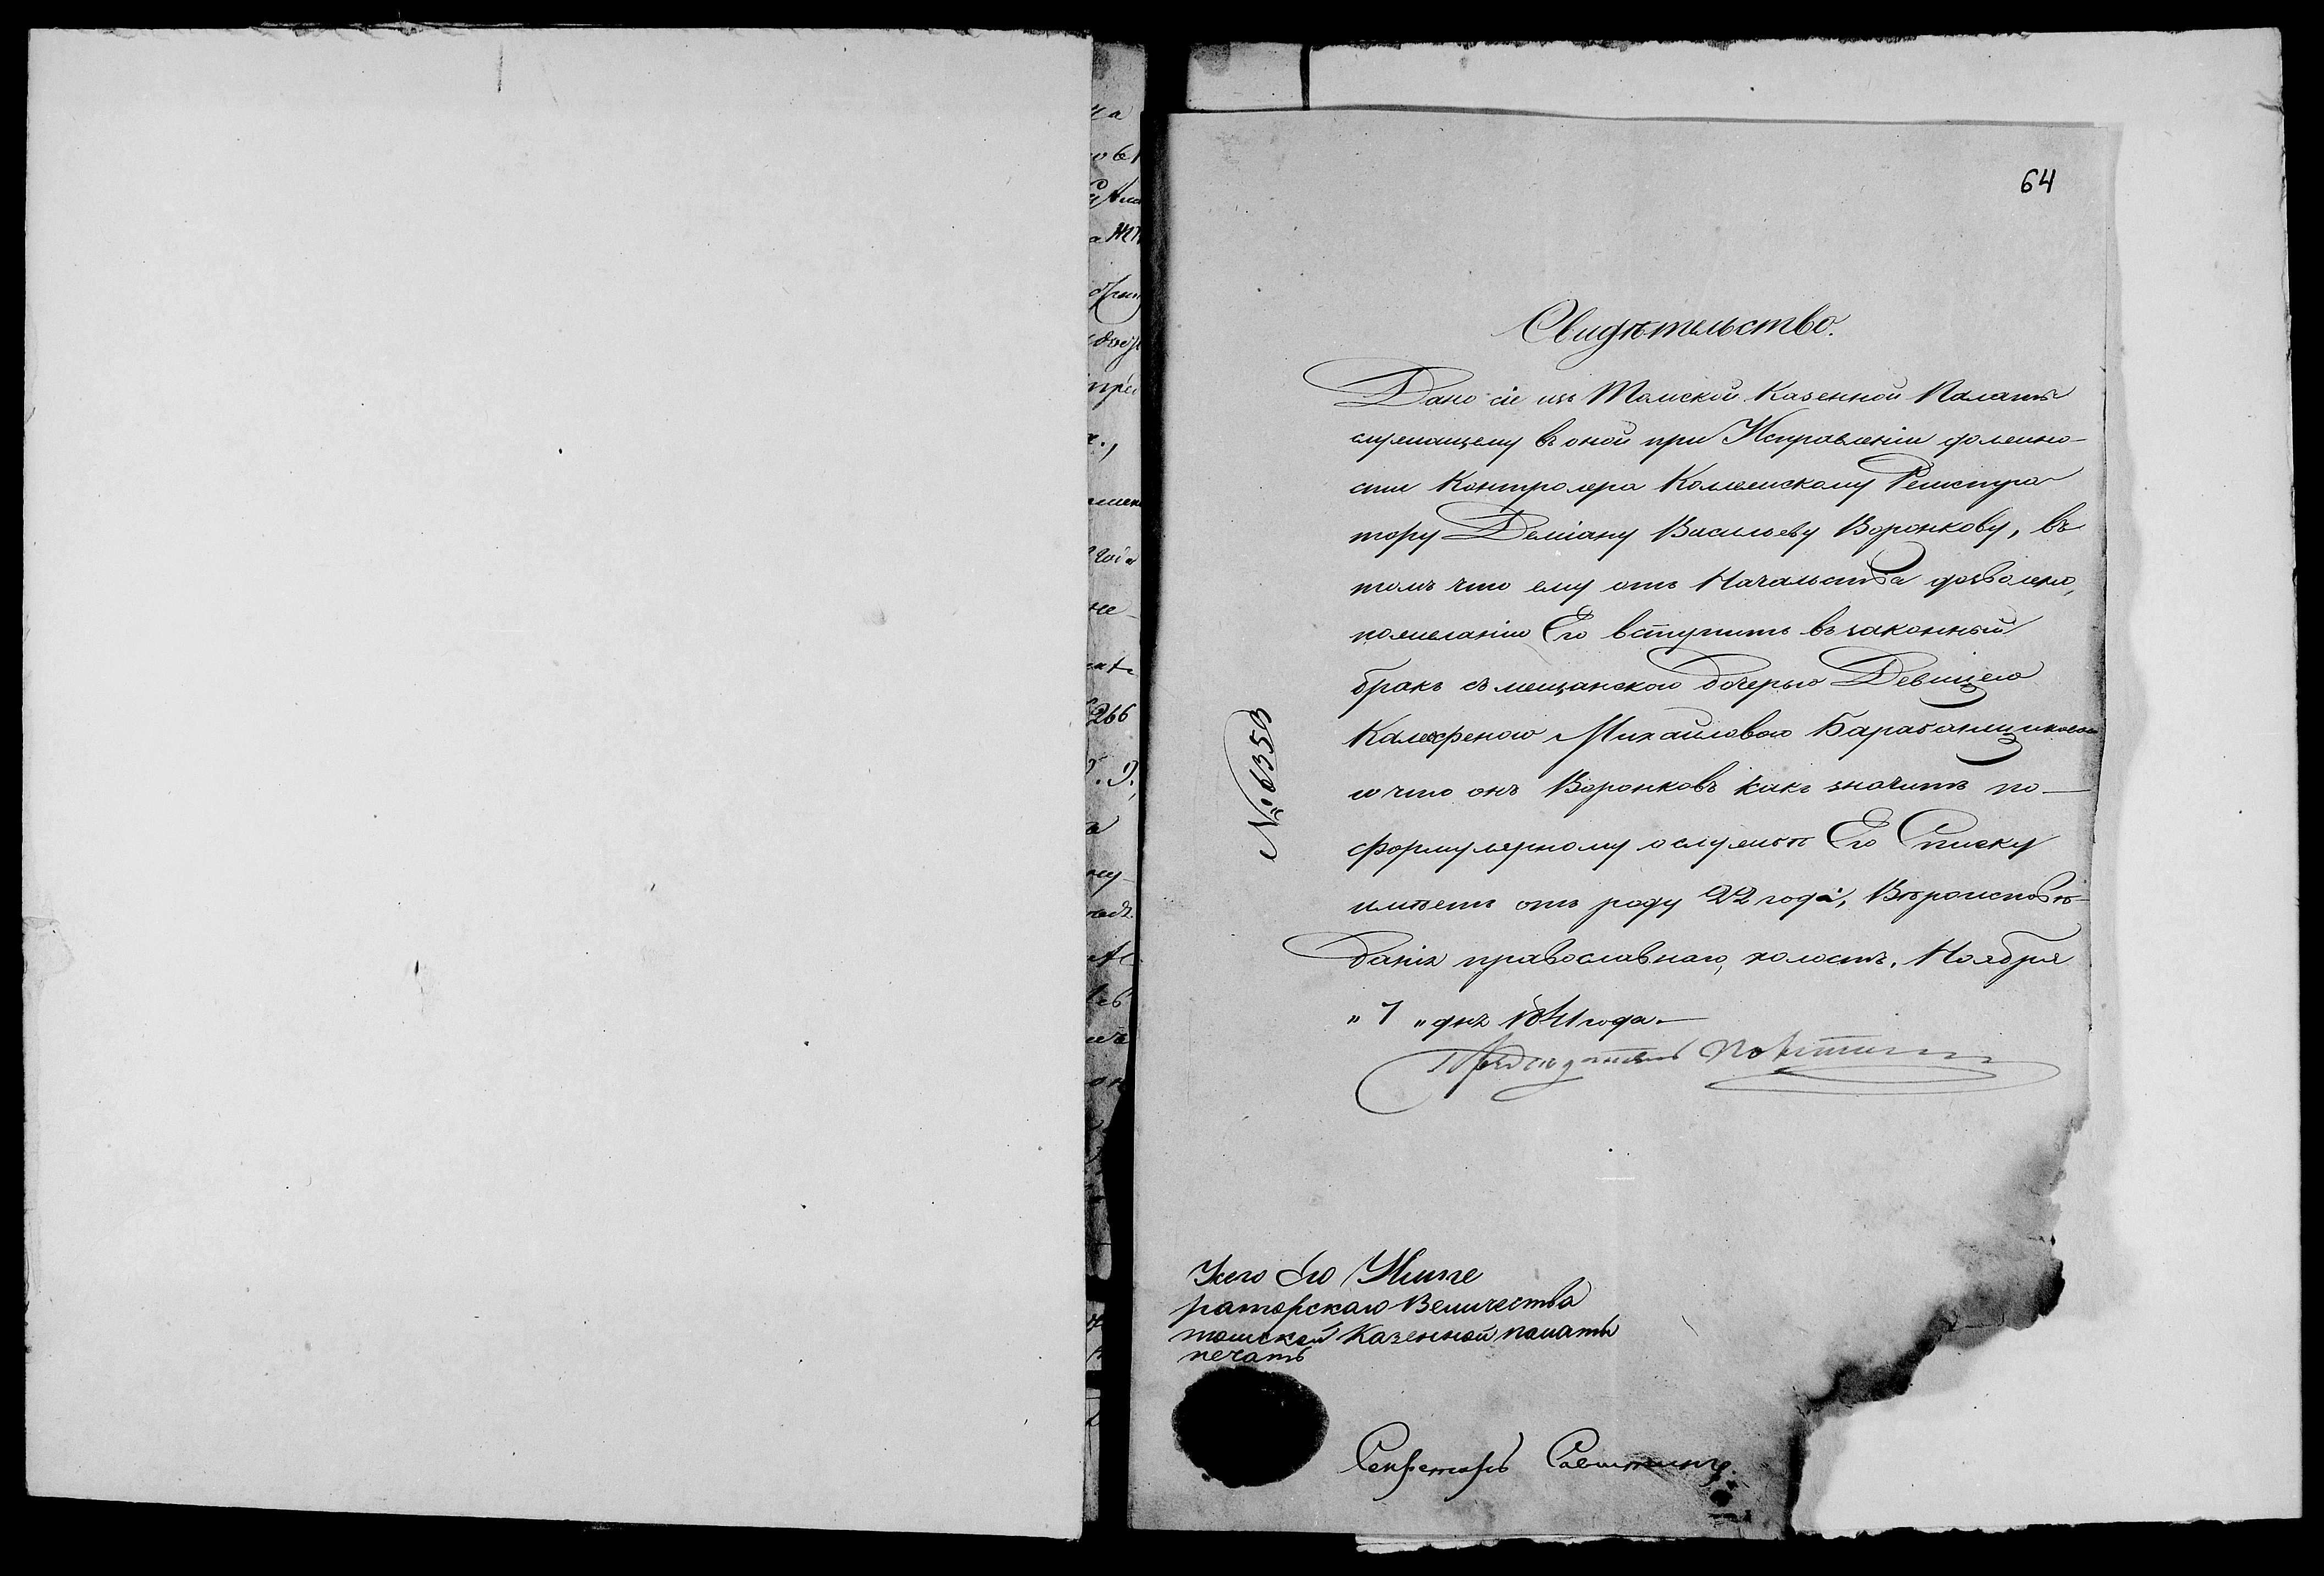 64
Свидѣтельство.
Дано сіе изъ Томской Казенной Палаты
служащему въ оной при Исправленіи должно-
сти Контролера Коллежскому Регистра
тору Деміану Васильеву Воронкову, въ
томъ что ему отъ Начальства дозволено,
пожеланію Его вступить въ законный
бракъ съ мещанскою дочерью Девицею
Михайловою Барабанщиковою
и что онъ Воронковъ какъ значитъ по-
формулярному ослужбѣ Его Списку
имѣетъ отъ роду 22 года, Вѣроисповѣ-
данія православнаго, холостъ. Ноября
„ 7 „ дня 1841 года.
№ 6359
Предсѣдатель
Его Импе
раторскаго Величества
томской Казенной палаты
печать
Секретарь